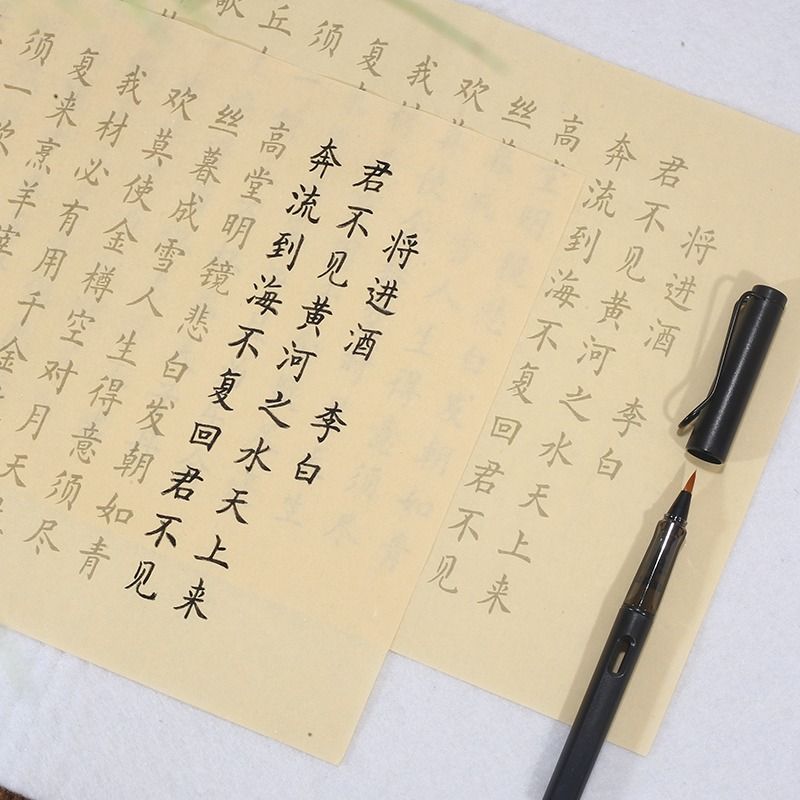 将进酒 李白
君不见黄河之水天上来
奔流到海不复回君不见
高堂明镜悲白发朝如青
丝暮成雪人生得意须尽
欢莫使金樽空对月天
我材必有用千金
复来烹羊宰
须一
将进酒 李白
君不见黄河之水天上来
奔流到海不复回君不见
高
丝
欢
我
复
须
丘